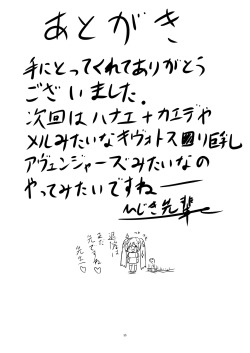 あとがき
手にとってくれてありがとう
ございました。
次回は ハナエ+カエデや
メルみたいなキヴォトス
アヴェンジャーズみたいなの
やってみたいですねー
先輩